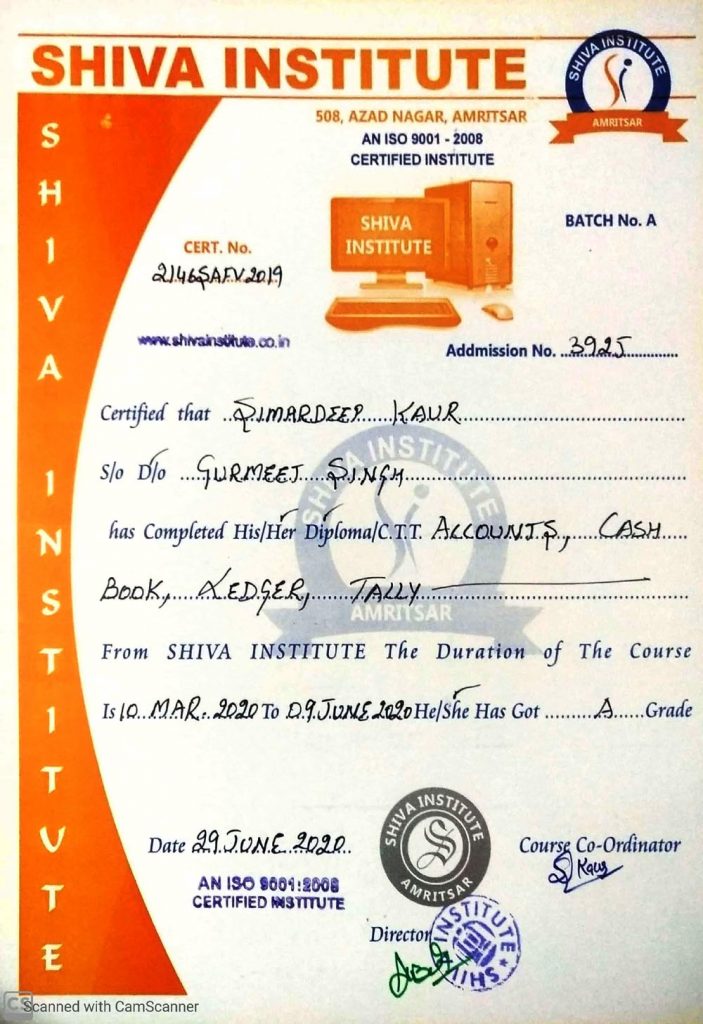 SHIVA INSTITUTE
SHIVA INSTITUTE
AMRITSAR
508, AZAD NAGAR, AMRITSAR
AN ISO 9001 - 2008
CERTIFIED INSTITUTE
SHIVA INSTITUTE
SHIVA
INSTITUTE
BATCH No. A
CERT. No.
2146SAFV2019
www.shivainstitute.co.in
Addmission No. 3925
Certified that SIMARDEEP KAUR
S/o D/o GURMEET SINGH
has Completed His/Her Diploma/C.T.T. ACCOUNTS, CASH
BOOK, LEDGER, TALLY
SHIVA INSTITUTE
AMRITSAR
From SHIVA INSTITUTE The Duration of The Course
Is 10 MAR. 2020 To 09 JUNE 2020 He/She Has Got A Grade
SHIVA INSTITUTE
AMRITSAR
Date 29 JUNE 2020
Course Co-Ordinator
Kaur
AN ISO 9001:2008
CERTIFIED INSTITUTE
Director
INSTITUTE
CS Scanned with CamScanner